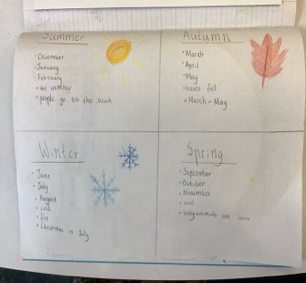 Summer
• December
• January
• February
• people go too the beach
Autumn
• March
• April
• May
leaves fall
• March - May
Winter
• June
• July
• August
• cold
• Christmas in July
Spring
• September
• October
• November
• baby animals are born